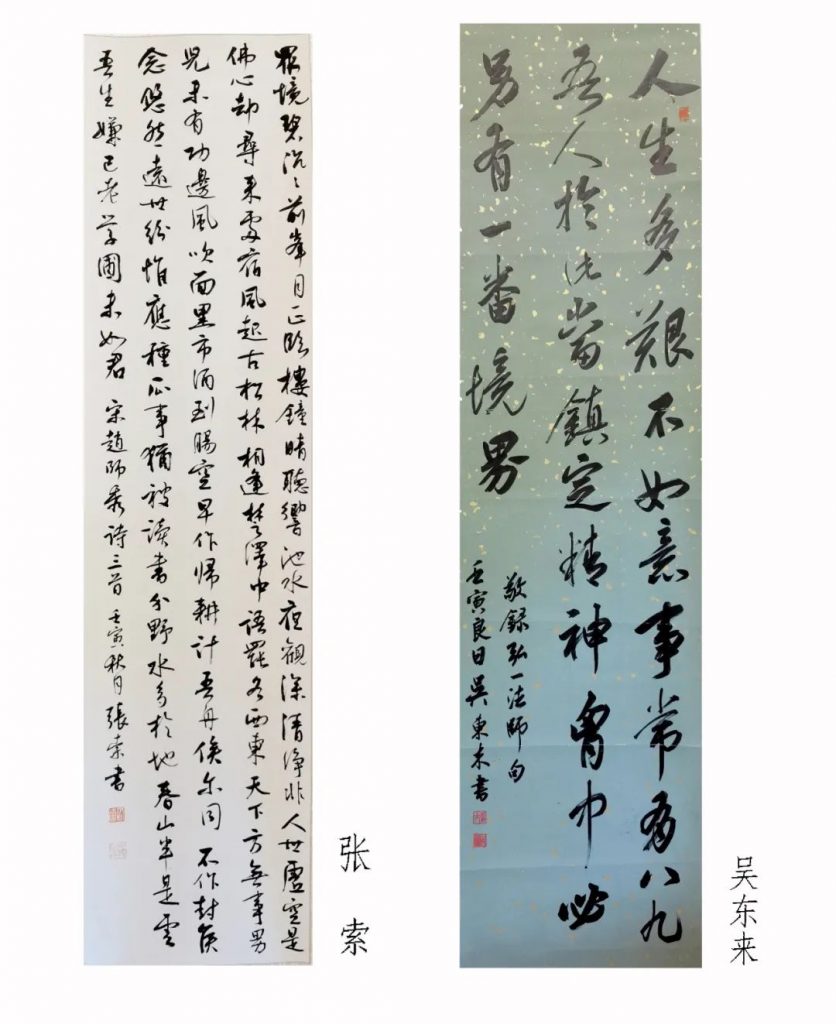 眾境碧沉〻前峯月正臨樓鐘晴聽響池水夜觀深清淨非人世虛空是
佛心却尋來處宿風起古松林 相逢楚澤中語罷各西東天下方無事男
兒未有功邊風吹面黑市酒到腸空早作歸耕計吾舟俟尔同 不作封侯
念悠然遠世紛惟應種瓜事猶被讀書分野水多於地春山半是雲
吾生嫌已老學圃未如君 宋趙師秀詩三首 壬寅秋月張索書
张索
人生多艱不如意事常有八九
吾人於此當鎮定精神胷中必
另有一番境界
敬錄弘一法師句
壬寅良日吳東来書
吴东来